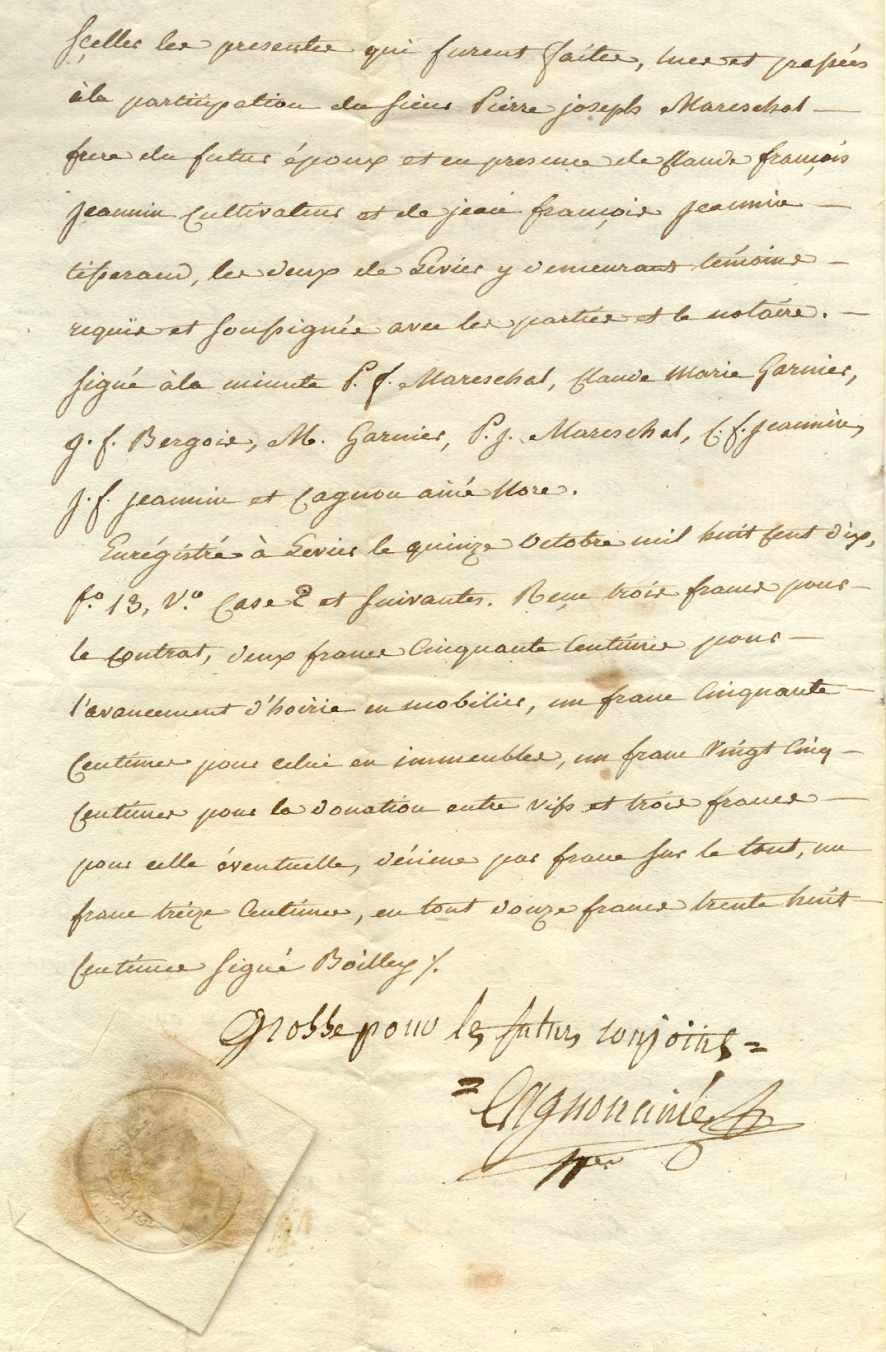 sçeller les presentes qui furent faites, lues et passées
à la participation du sieur Pierre joseph Mareschal —
frere du futur époux et en presence de Claude françois
jeannin Cultivateur et de jean françois jeannin —
tisserand, les deux de Levier y demeurant témoins —
requis et soussignés avec les parties et le notaire. —
signé à la minute P. f. Mareschal, Claude Marie Garnier,
g. f. Bergoin, M. Garnier, P. j. Mareschal, C. f. jeannin,
j. f. jeannin et Cagnon ainé Nore.
Enrégistré à Levier le quinze Octobre mil huit Cent dix,
f.º 13, V.º Case 2 et suivantes. Reçu trois francs pour —
le Contrat, deux francs Cinquante Centimes pour —
l'avancement d'hoirie en mobilier, un franc Cinquante —
Centimes pour celui en immeubles, un franc Vingt Cinq —
Centimes pour la donation entre vifs et trois francs —
pour celle éventuelle, décime par franc sur le tout, un
franc treize Centimes, en tout douze francs trente huit
Centimes signé Boilley /.
Grosse pour les futurs conjoints =
= Cagnon ainé
Nre